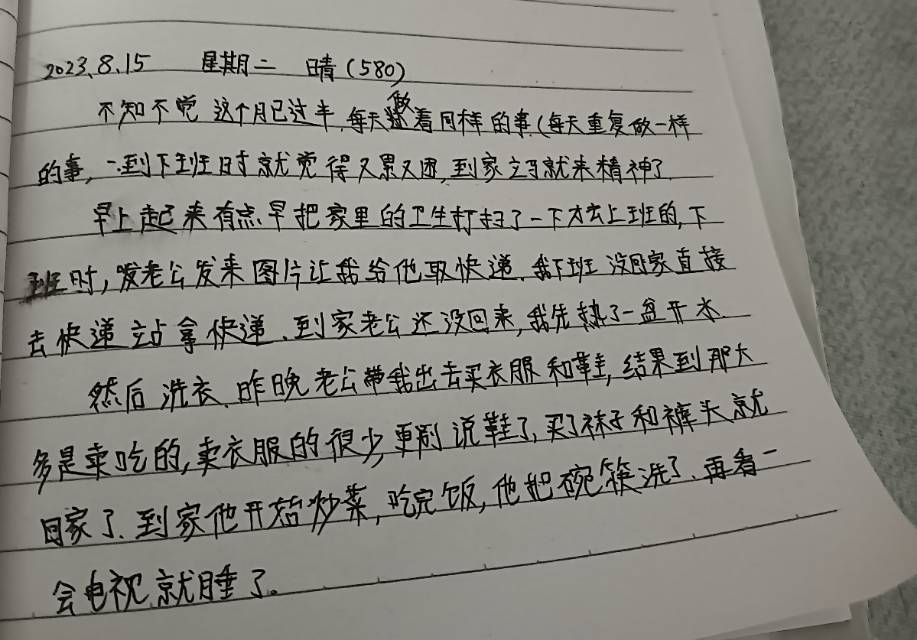 2023.8.15 星期二 晴(580)
不知不觉这个月已过半,每天做着同样的事(每天重复做一样
的事,一到下班时就觉得又累又困,到家立马就来精神了
早上起来有点早把家里的卫生打扫了一下才去上班的,下
班时,老公发来图片让我给他取快递,我下班没回家直接
去快递站拿快递、到家老公还没回来,我先热了一盆开水
然后洗衣、昨晚老公带我出去买衣服和鞋,结果到那大
多是卖吃的,卖衣服的很少,更别说鞋了,买了袜子和裤头就
回家了、到家他开始炒菜,吃完饭,他把碗筷洗了、再看一
会电视就睡了。